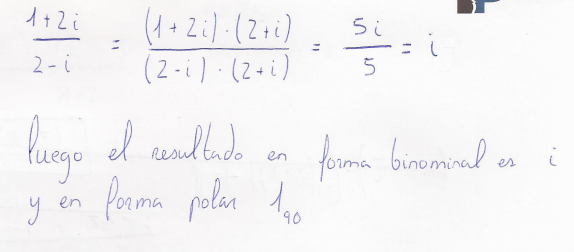 (1+2i)/(2-i) = ((1+2i)·(2+i))/((2-i)·(2+i)) = 5i/5 = i
luego el resultado en forma binominal es i
y en forma polar 1₉₀